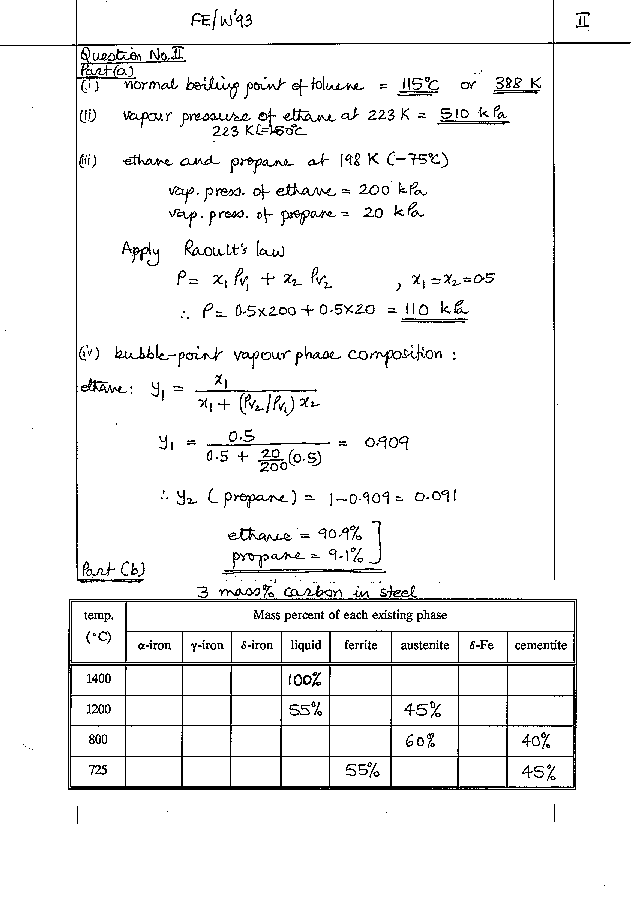 FE/W'93
II
Question No.II
Part(a)
(i) normal boiling point of toluene = 115°C or 388 K
(ii) vapour pressure of ethane at 223 K = 510 kPa
223 K(=-50°C
(iii) ethane and propane at 198 K (-75°C)
vap. press. of ethane = 200 kPa
vap. press. of propane = 20 kPa
Apply Raoult's law
P = x₁ Pv₁ + x₂ Pv₂ , x₁ = x₂ = 0.5
∴ P = 0.5x200 + 0.5x20 = 110 kPa
(iv) bubble-point vapour phase composition :
ethane: y₁ = x₁ / x₁ + (Pv₂/Pv₁) x₂
y₁ = 0.5 / 0.5 + 20/200 (0.5) = 0.909
∴ y₂ (propane) = 1-0.909 = 0.091
ethane = 90.9%
propane = 9.1% ]
Part (b)
3 mass% carbon in steel
temp. (°C) Mass percent of each existing phase
α-iron γ-iron δ-iron liquid ferrite austenite δ-Fe cementite
1400 100%
1200 55% 45%
800 60% 40%
725 55% 45%